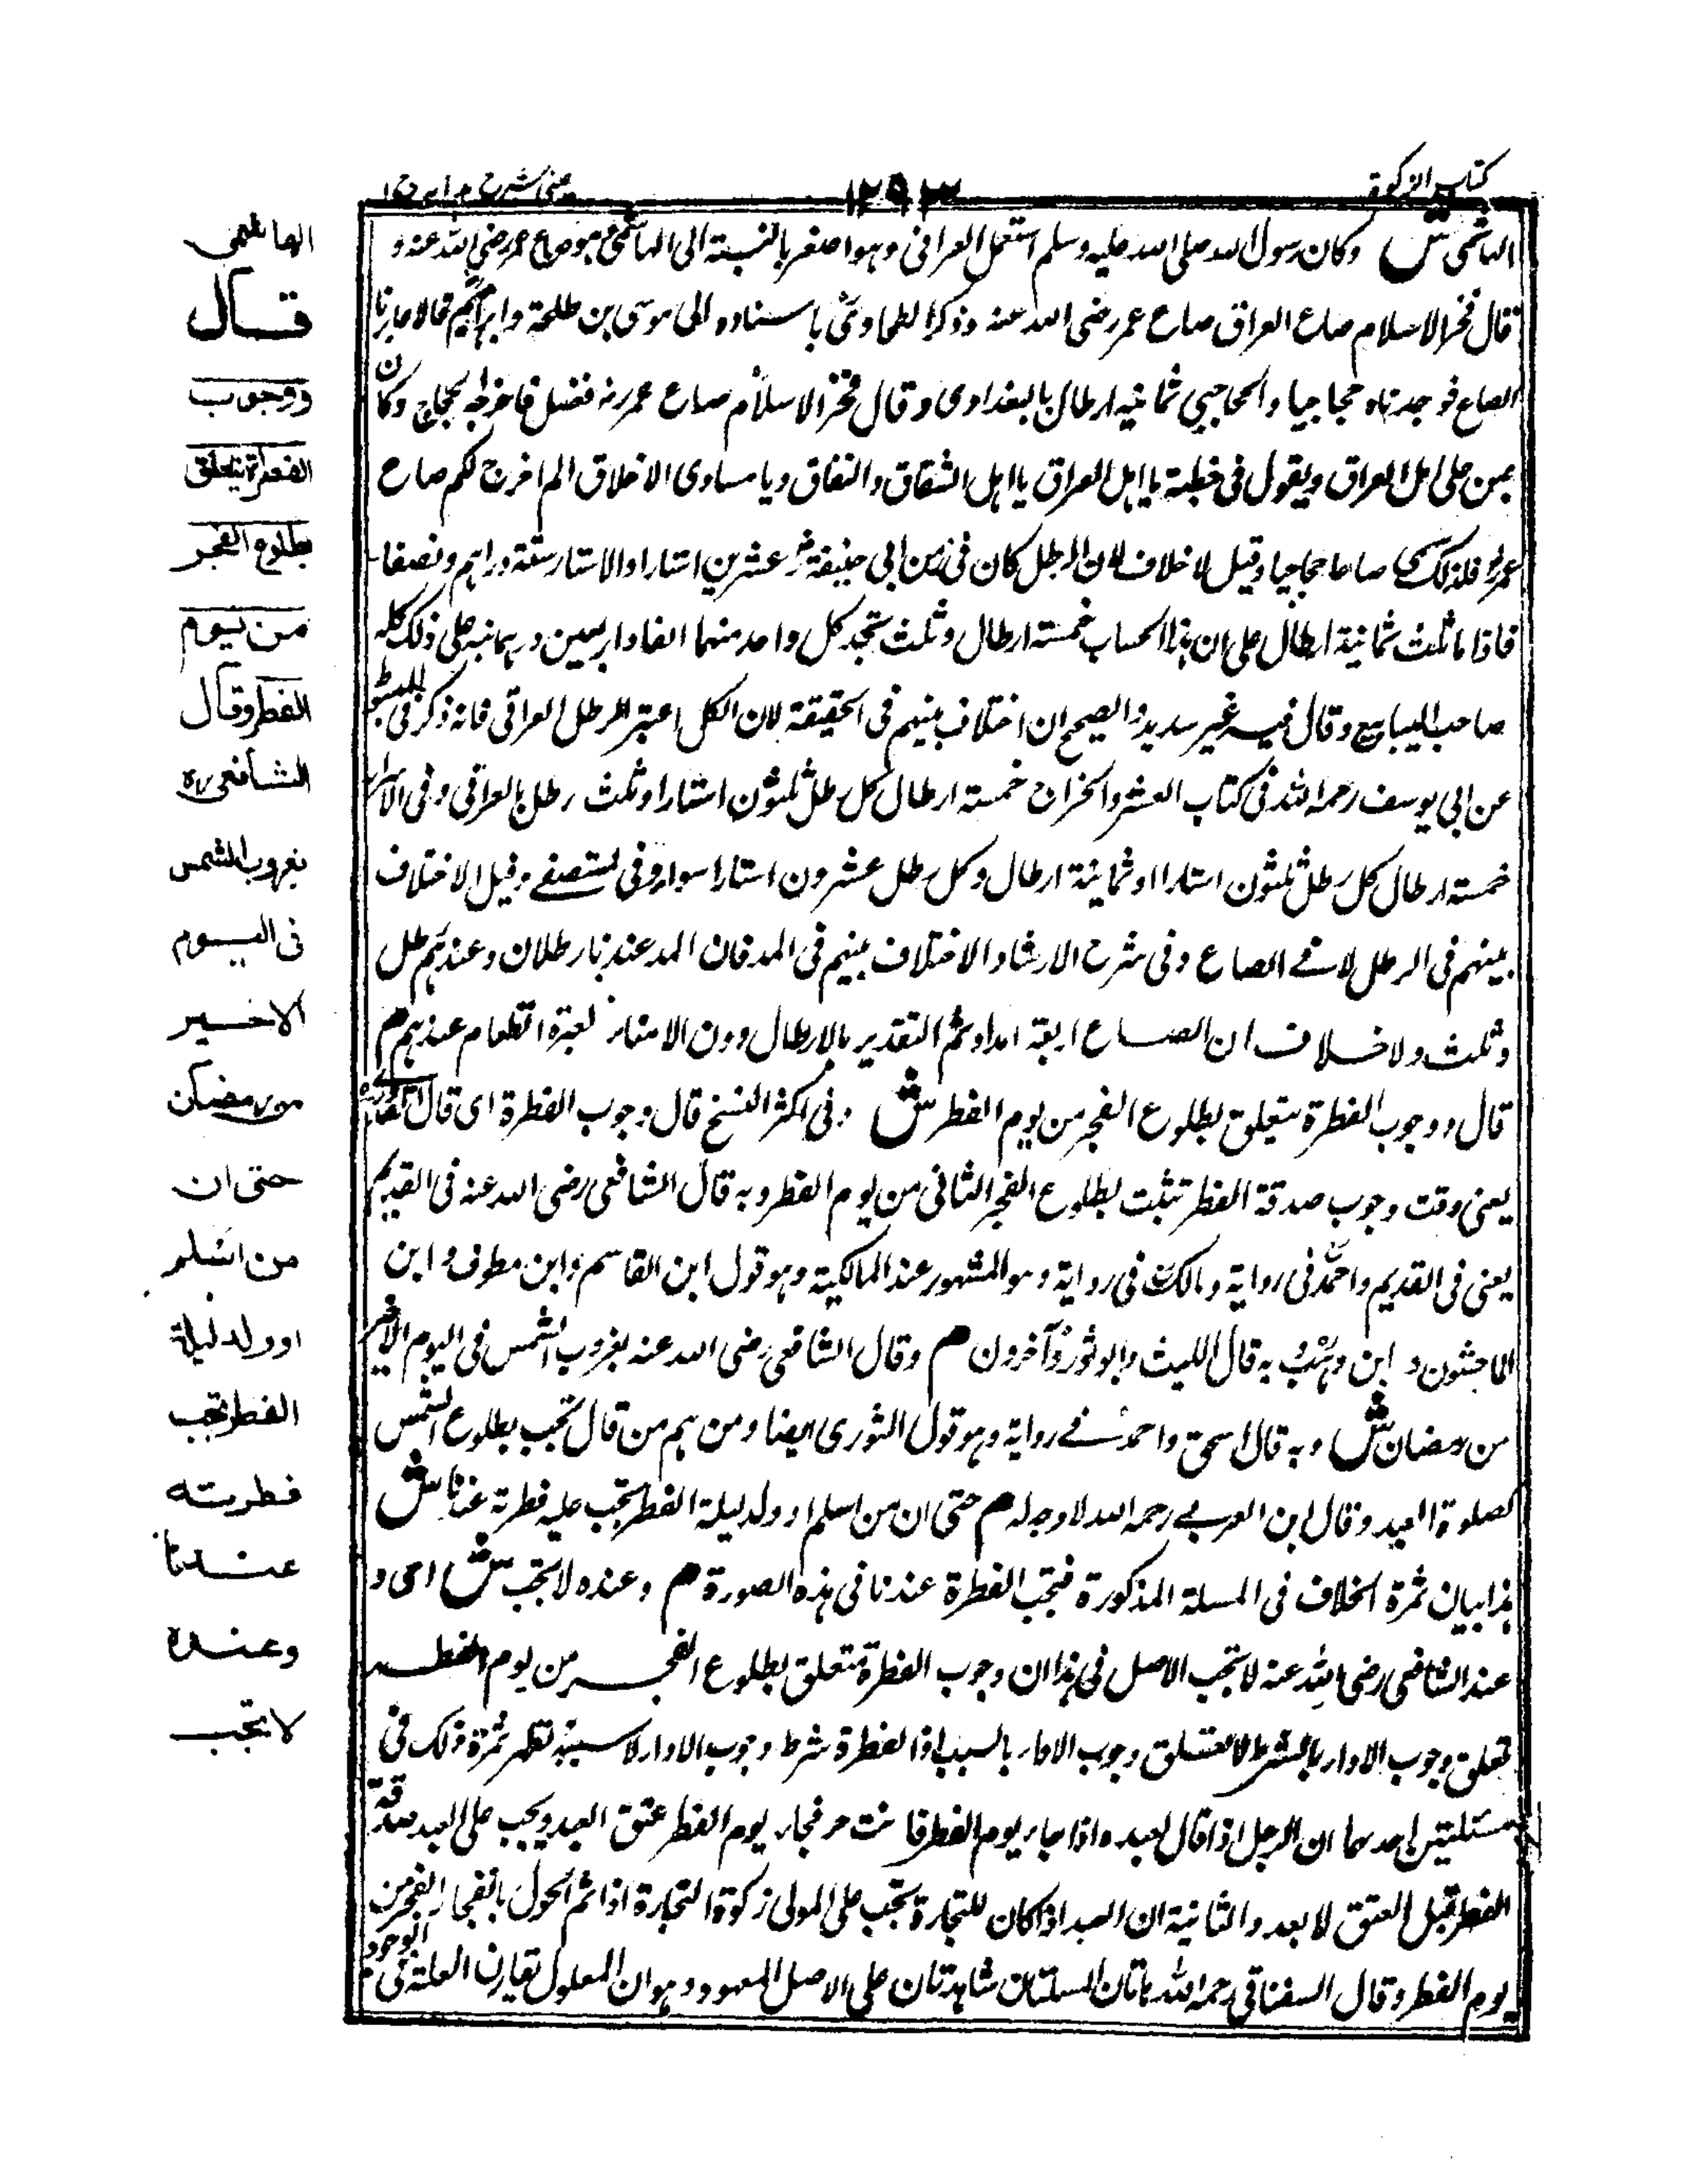 كتاب الزكوة
١٢٩٣
عينى شرح هدايه ج ١
الهاشمى ش وكان رسول الله صلى الله عليه وسلم استعمل العراقى وهو اصغر بالنسبة الى الهاشمى م وهو صاع عمر رضى الله عنه و
قال فخر الاسلام صاع العراق صاع عمر رضى الله عنه وذكر الطحاوى باسناده الى موسى بن طلحة وابراهيم قالا عايرنا
الصاع فوجدناه حجاجيا والحجاجى ثمانيه ارطال بالبغدادى وقال فخر الاسلام صاع عمر رضه فضل فاخرجه الحجاج وكان
يمن على اهل العراق ويقول فى خطبة يا اهل العراق يا اهل الشقاق والنفاق ويا مساوى الاخلاق الم اخرج لكم صاع
عمر فلذلك سمى صاعا حجاجيا وقيل لا خلاف لان الرطل كان فى زمن ابى حنيفة عشرين استارا والاستار ستة دراهم ونصفا
فاذا ثمانية ارطال على ان هذا الحساب خمسة ارطال وثلث تجد كل واحد منهما الفا واربعين درهما نبه على ذلك كله
صاحب الينابيع وقال فيه غير سديد والصحيح ان اختلاف بينهم فى الحقيقة لان الكل اعتبر الرطل العراقى فانه ذكر فى المبسوط
عن ابى يوسف رحمه الله فى كتاب العشر والخراج خمسة ارطال كل رطل ثلثون استارا وثلث رطل بالعراقى وفى الاسرار
خمسة ارطال كل رطل ثلثون استارا او ثمانية ارطال وكل رطل عشرون استارا سواء وفى المستصفى وقيل الاختلاف
بينهم فى الرطل لا فى الصاع وفى شرح الارشاد الاختلاف بينهم فى المد فان المد عندنا رطلان وعندهم رطل
وثلث ولا خلاف ان الصاع اربعة امداد ثم التقدير بالارطال دون الامناء لعبرة الطعام عندهم م
قال ووجوب الفطرة يتعلق بطلوع الفجر من يوم الفطر ش وفى اكثر النسخ قال وجوب الفطرة اى قال القدورى
يعنى وقت وجوب صدقة الفطر تثبت بطلوع الفجر الثانى من يوم الفطر وبه قال الشافعى رضى الله عنه فى القديم
يعنى فى القديم واحمد فى رواية ومالك فى رواية وهو المشهور عند المالكية وهو قول ابن القاسم وابن مطرف وابن
الماجشون و ابن وهب به قال الليث وابو ثور وآخرون م وقال الشافعى رضى الله عنه بغروب الشمس فى اليوم الاخير
من رمضان ش وبه قال اسحق واحمد فى رواية وهو قول الثورى ايضا ومن هم من قال تجب بطلوع الشمس
لصلوة العيد وقال ابن العربى رحمه الله لا وجه له م حتى ان من اسلم او ولد ليلة الفطر تجب عليه فطرته عندنا ش
هذا بيان ثمرة الخلاف فى المسئلة المذكورة فتجب الفطرة عندنا فى هذه الصورة م وعنده لا تجب ش اى و
عند الشافعى رضى الله عنه لا تجب الاصل فى هذا ان وجوب الفطرة متعلق بطلوع الفجر من يوم الفطر
تعلق وجوب الاداء بالشرط لا تعلق وجوب الاداء بالسبب اذ الفطرة شرط وجوب الاداء لا سببه تظهر ثمرة ذلك فى
مسئلتين احدهما ان الرجل اذا قال لعبده اذا جاء يوم الفطر فانت حر فجاء يوم الفطر عتق العبد ويجب على العبد صدقة
الفطر قبل العتق لا بعد والثانية ان العبد اذا كان للتجارة تجب على المولى زكوة التجارة اذا تم الحول بانفجار الفجر من
يوم الفطر وقال السغناقى رحمه الله هاتان المسئلتان شاهدتان على الاصل المعهود وهو ان المعلول يقارن العلة فى الوجود م
الهاشمى
قال
ووجوب
الفطرة يتعلق
بطلوع الفجر
من يوم
الفطر وقال
الشافعى ره
بغروب الشمس
فى اليوم
الاخير
من رمضان
حتى ان
من اسلم
او ولد ليلة
الفطر تجب
فطرته
عندنا
وعنده
لا تجب